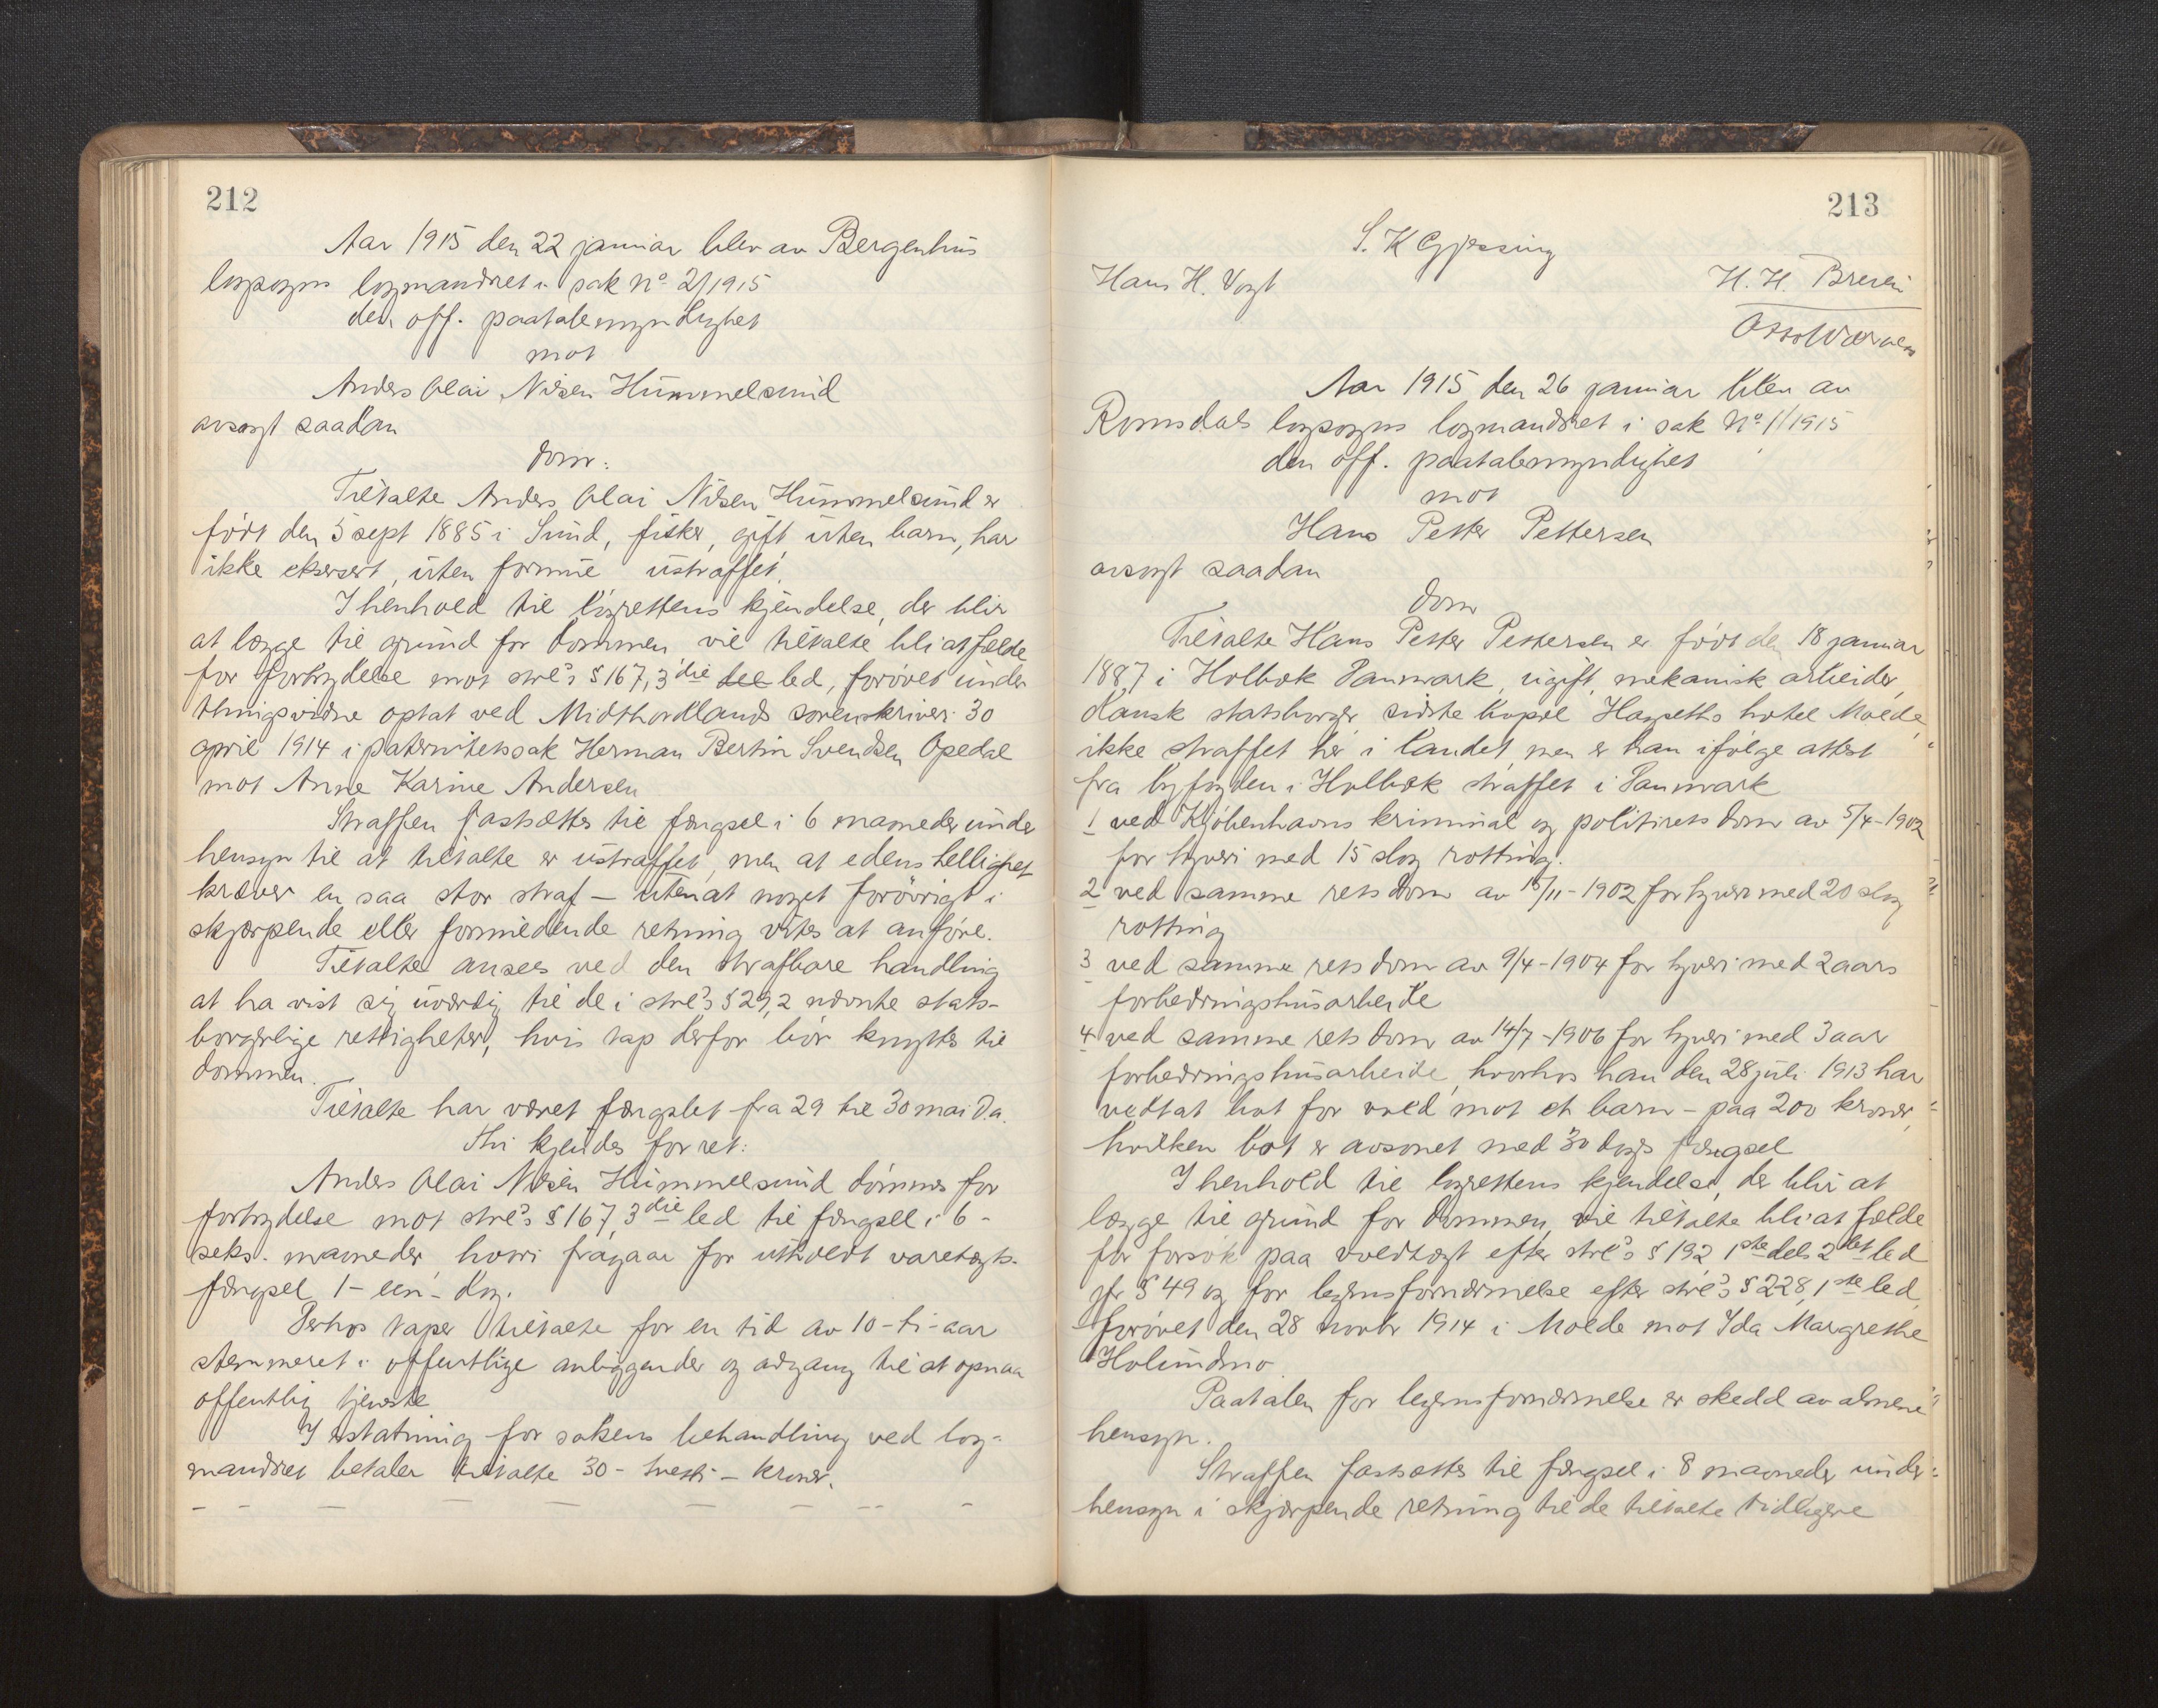 212
Aar 1915 den 22 januar blev av Bergenhus
lagsogns lagmandsret i sak No 2/1915
den off. paatalemyndighet
mot
Anders Olai Nilsen Hummelsund
avsagt saadan
dom:
Tiltalte Anders Olai Nilsen Hummelsund er
født den 5 sept 1885 i Sund, fisker, gift, uten barn, har
ikke eksersert, uten formue ustraffet.
I henhold til lagrettens kjendelse, der blir
at lægge til grund for dommen vil tiltalte bli at fælde
for forbrydelse mot strl's § 167, 3die led, forøvet under
thingsvidne optat ved Midthordlands sorenskriveri 30
april 1914 i paternitetssak Herman Bertin Svendsen Opedal
mot Anne Karine Andersen
Straffen fastsættes til fængsel i 6 maaneder under
hensyn til at tiltalte er ustraffet, men at edens hellighet
kræver en saa stor straf – uten at noget forøvrigt i
skjærpende eller formildende retning vites at anføre.
Tiltalte ansees ved den strafbare handling
at ha vist sig uværdig til de i strl's § 29,2 nævnte stats-
borgerlige rettigheter, hvis tap derfor bør knyttes til
dommen.
Tiltalte har været fængslet fra 29 til 30 mai d.a.
Thi kjendes for ret:
Anders Olai Nilsen Hummelsund dømmes for
forbrydelse mot strl's § 167, 3die led til fængsel i 6 -
seks - maaneder, hvori fragaar for utholdt varetægts-
fængsel 1 - een - dag.
Derhos taper tiltalte for en tid av 10 - ti - aar
stemmeret i offentlige anliggender og adgang til at opnaa
offentlig tjeneste
I erstatning for sakens behandling ved lag-
mandsret betaler tiltalte 30 - tretti - kroner.
213
S. K Gjessing
Hans H. Vogt
H. H.
Aar 1915 den 26 januar blev av
Romsdals lagsogns lagmandsret i sak No 1/1915
den off. paatalemyndighet
mot
Hans Petter Pettersen
avsagt saadan
dom
Tiltalte Hans Petter Pettersen er født den 18 januar
1887 i Holbæk Danmark, ugift, mekanisk arbeider,
dansk statsborger sidste bopæl Hagseths hotel Molde,
ikke straffet her i landet men er han ifølge attest
fra byfogden i Holbæk straffet i Danmark
1 ved Kjøbenhavns kriminal og politirets dom av 5/4-1902
for tyveri med 15 slag rotting.
2 ved samme rets dom av 15/11-1902 for tyveri med 20 slag
rotting
3 ved samme rets dom av 9/4-1904 for tyveri med 2 aars
forbedringshusarbeide
4 ved samme rets dom av 14/7-1906 for tyveri med 3 aar
forbedringshusarbeide, hvorhos han den 28 juli 1913 har
vedtat bot for vold mot et barn – paa 200 kroner,
hvilken bot er avsonet med 30 dags fængsel
I henhold til lagrettens kjendelse, der blir at
lægge til grund for dommen, vil tiltalte bli at fælde
for forsøk paa voldtægt efter strl's § 192 1ste dels 2det led
jfr § 49 og for legemsfornærmelse efter strl's § 228, 1ste led,
forøvet den 28 novbr 1914 i Molde mot Ida Margrethe
Paatalen for legemsfornærmelse er skedd av almene
hensyn.
Straffen fastsættes til fængsel i 8 maaneder under
hensyn i skjærpende retning til de tiltalte tidligere